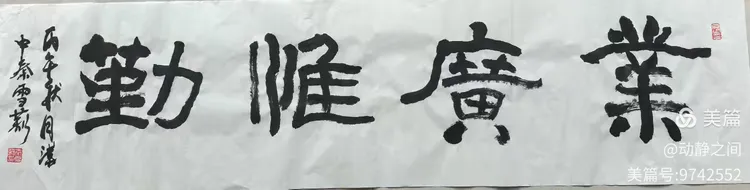 業廣惟勤
丙午秋月漢
中秦雪
美篇
@动静之间
美篇号:9742552